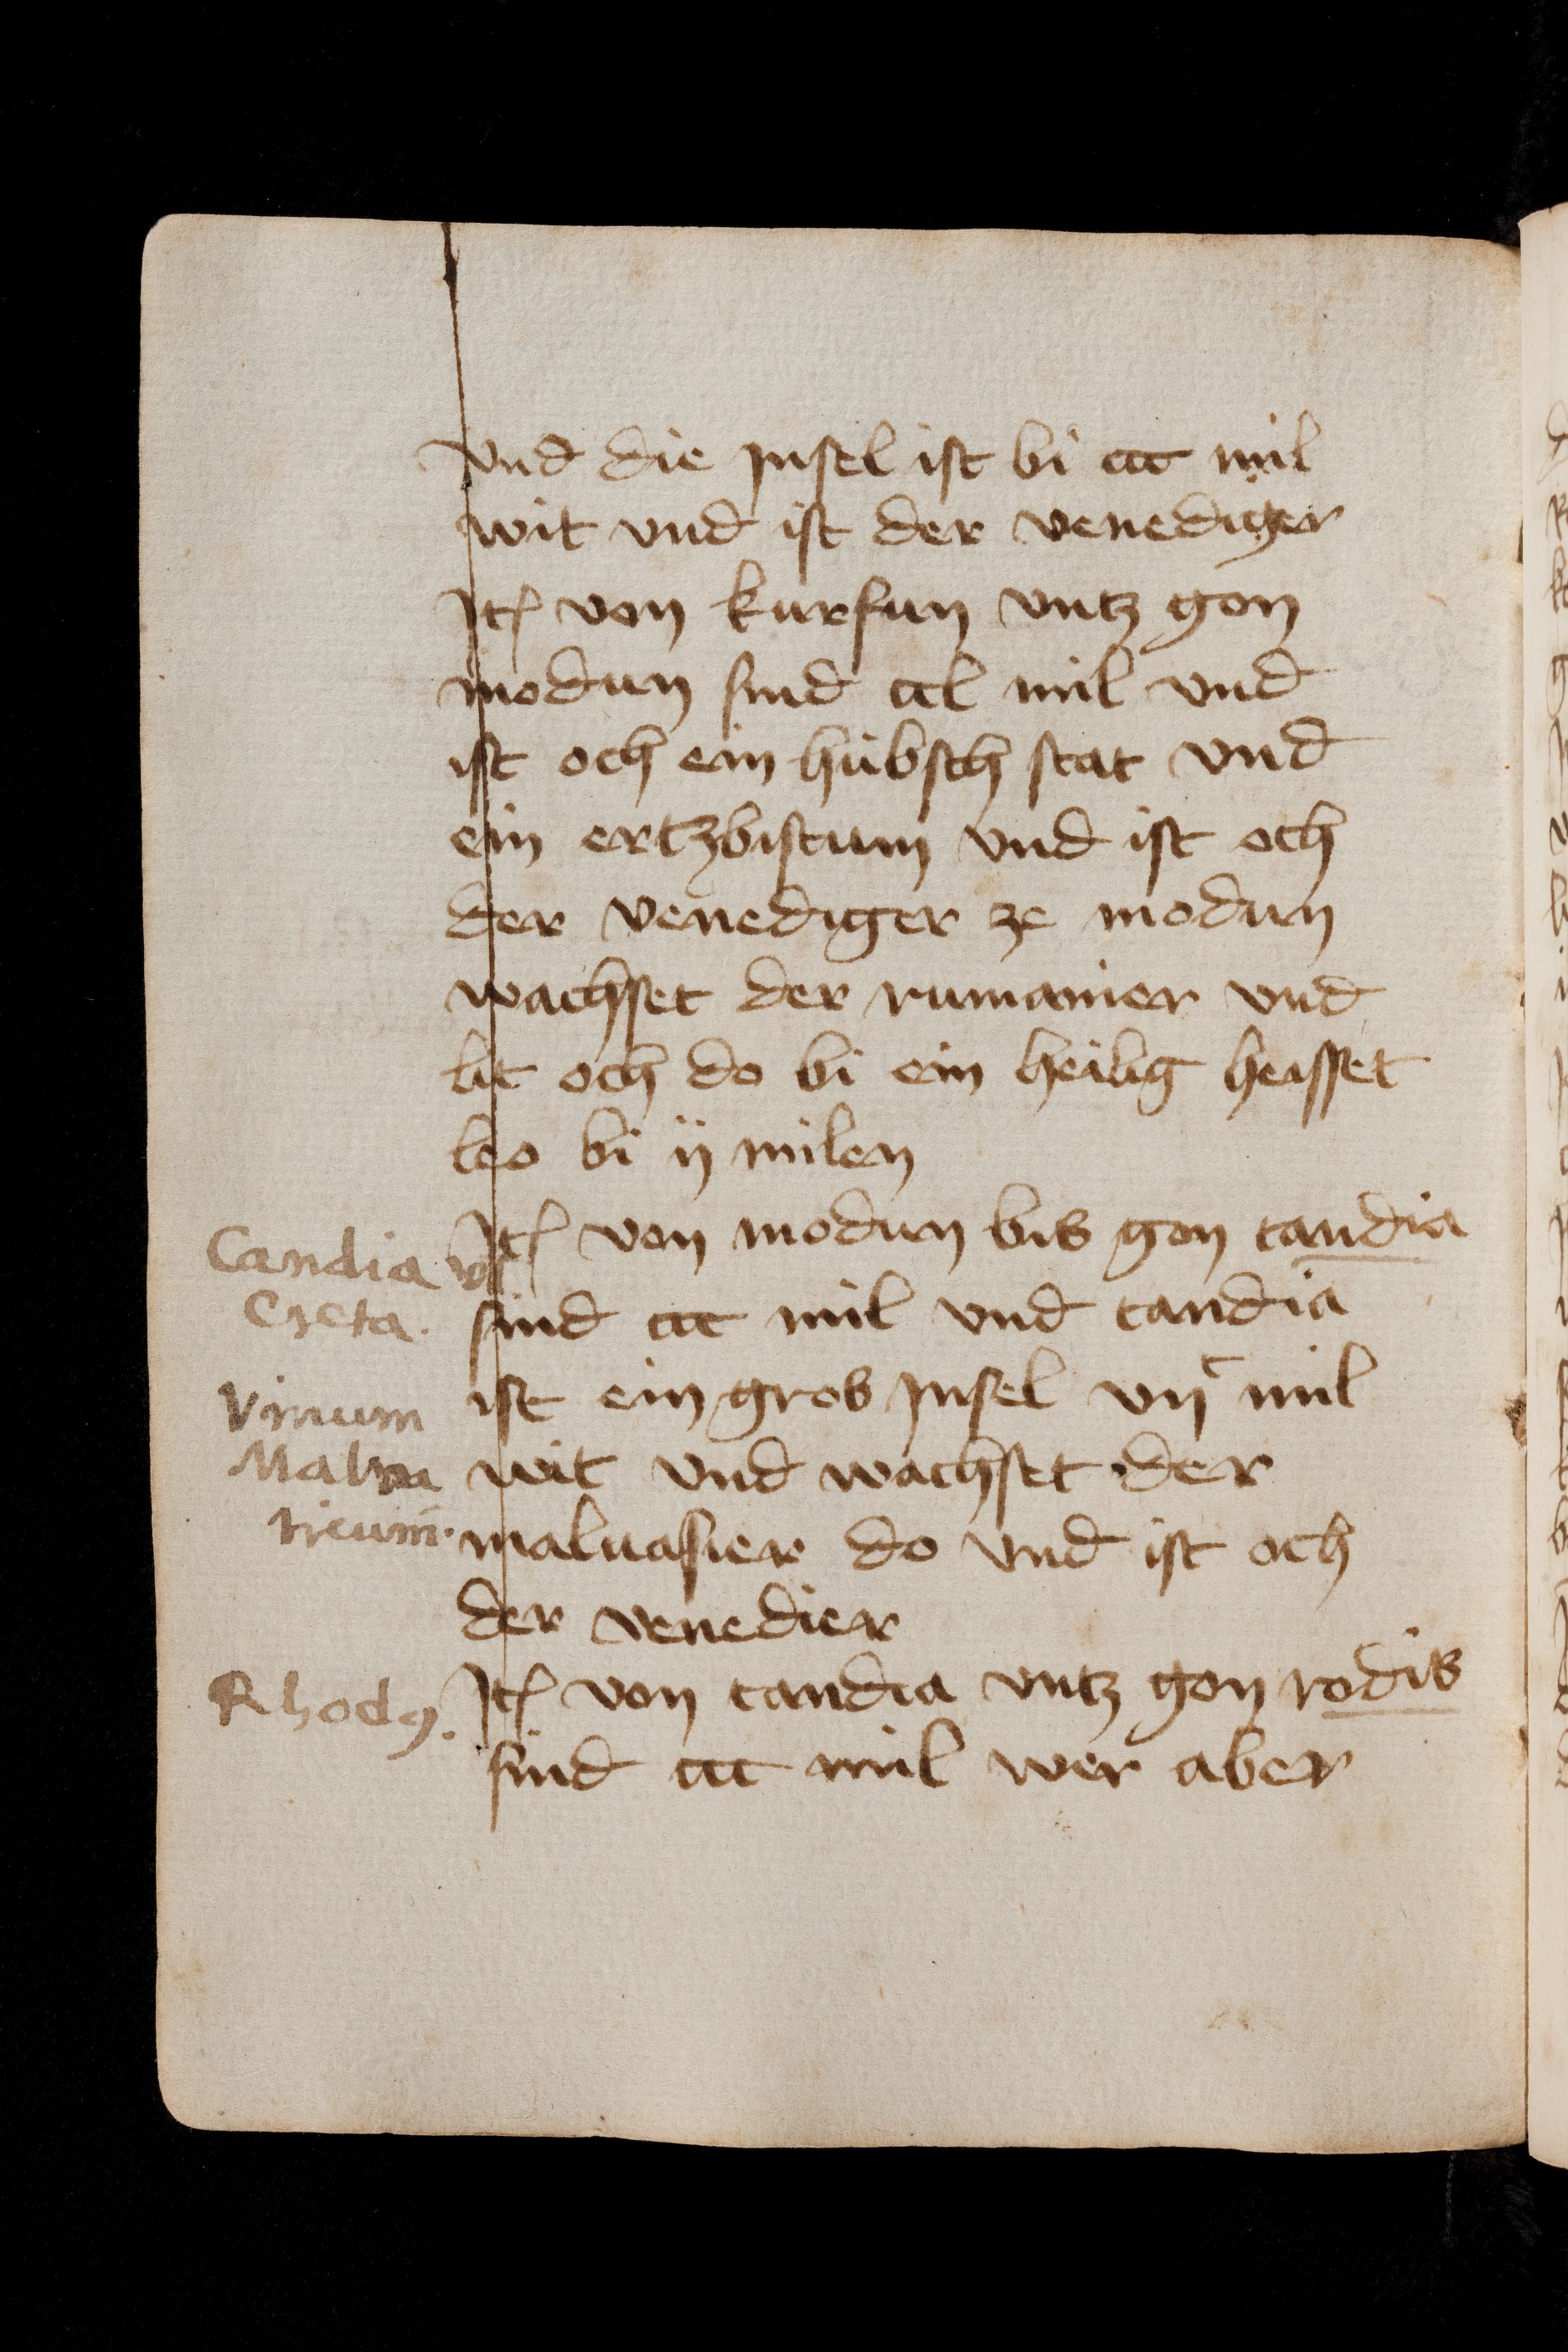 vnd die Jnsel ist bi ccc mil
wit vnd ist der venediger
Jtem von kurfun vntz gon
modun sind ccl mil vnd
ist och ein hübsch stat vnd
ein ertzbistum vnd ist och
der venediger ze modun
wachset der rumanier vnd
lit och do bi ein heilig heisset
leo bi ij milen
Jtem von modun bis gon candia
Candia vel
Creta.
sind ccc mil vnd candia
ist ein gros Jnsel vijc mil
Vinum
Malua
ticum.
wit vnd wachset der
maluasier do vnd ist och
der venedier
Rhodus.
Jtem von candia vntz gon rodis
sind ccc mil wer aber